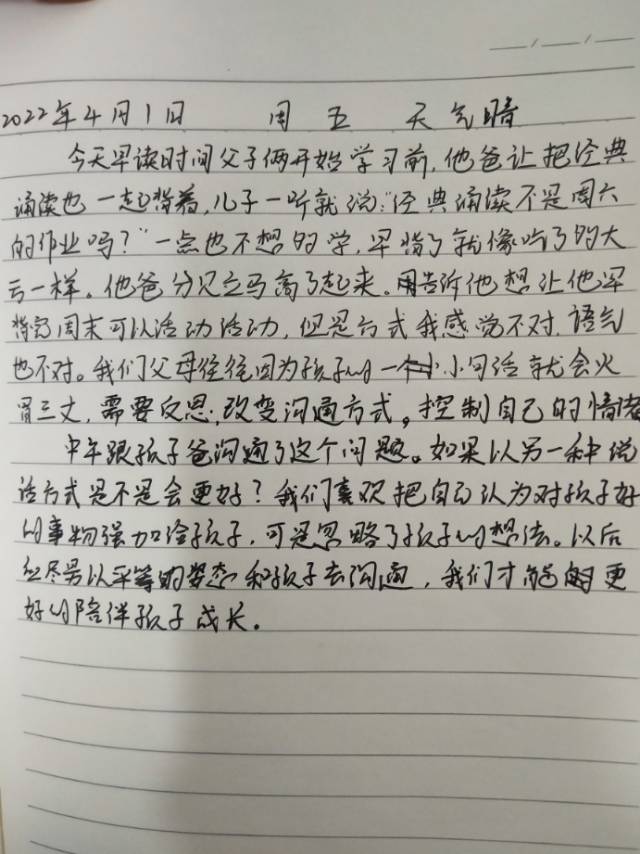 2022年4月1日 周五 天气晴
今天早读时间父子俩开始学习前,他爸让把经典
诵读也一起背着,儿子一听就说:"经典诵读不是周六
的作业吗?"一点也不想的学,早背了就像吃了的大
亏一样。他爸分贝立马高了起来。用告诉他想让他早
背完周末可以活动活动,但是方式我感觉不对,语气
也不对。我们父母往往因为孩子的一个小小句话就会火
冒三丈,需要反思,改变沟通方式。控制自己的情绪
中午跟孩子爸沟通了这个问题。如果以另一种说
话方式是不是会更好?我们喜欢把自己认为对孩子好
的事物强加给孩子,可是忽略了孩子的想法。以后
尽量以平等的姿态和孩子去沟通,我们才能更
好的陪伴孩子成长。